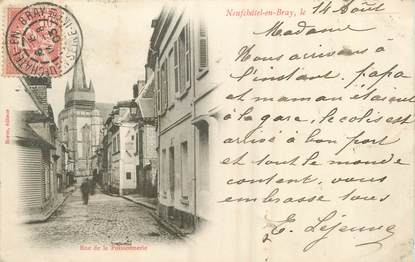 NEUFCHATEL-EN-BRAY
Neufchâtel-en-Bray, le 14 Août
Madame
Nous arrivons à
l'instant, papa
et maman étaient
à la gare, le colis est
arrivé à bon port
et tout le monde
content, vous
embrasse tous
E. Lejeune
Rue de la Poissonnerie
éditeur